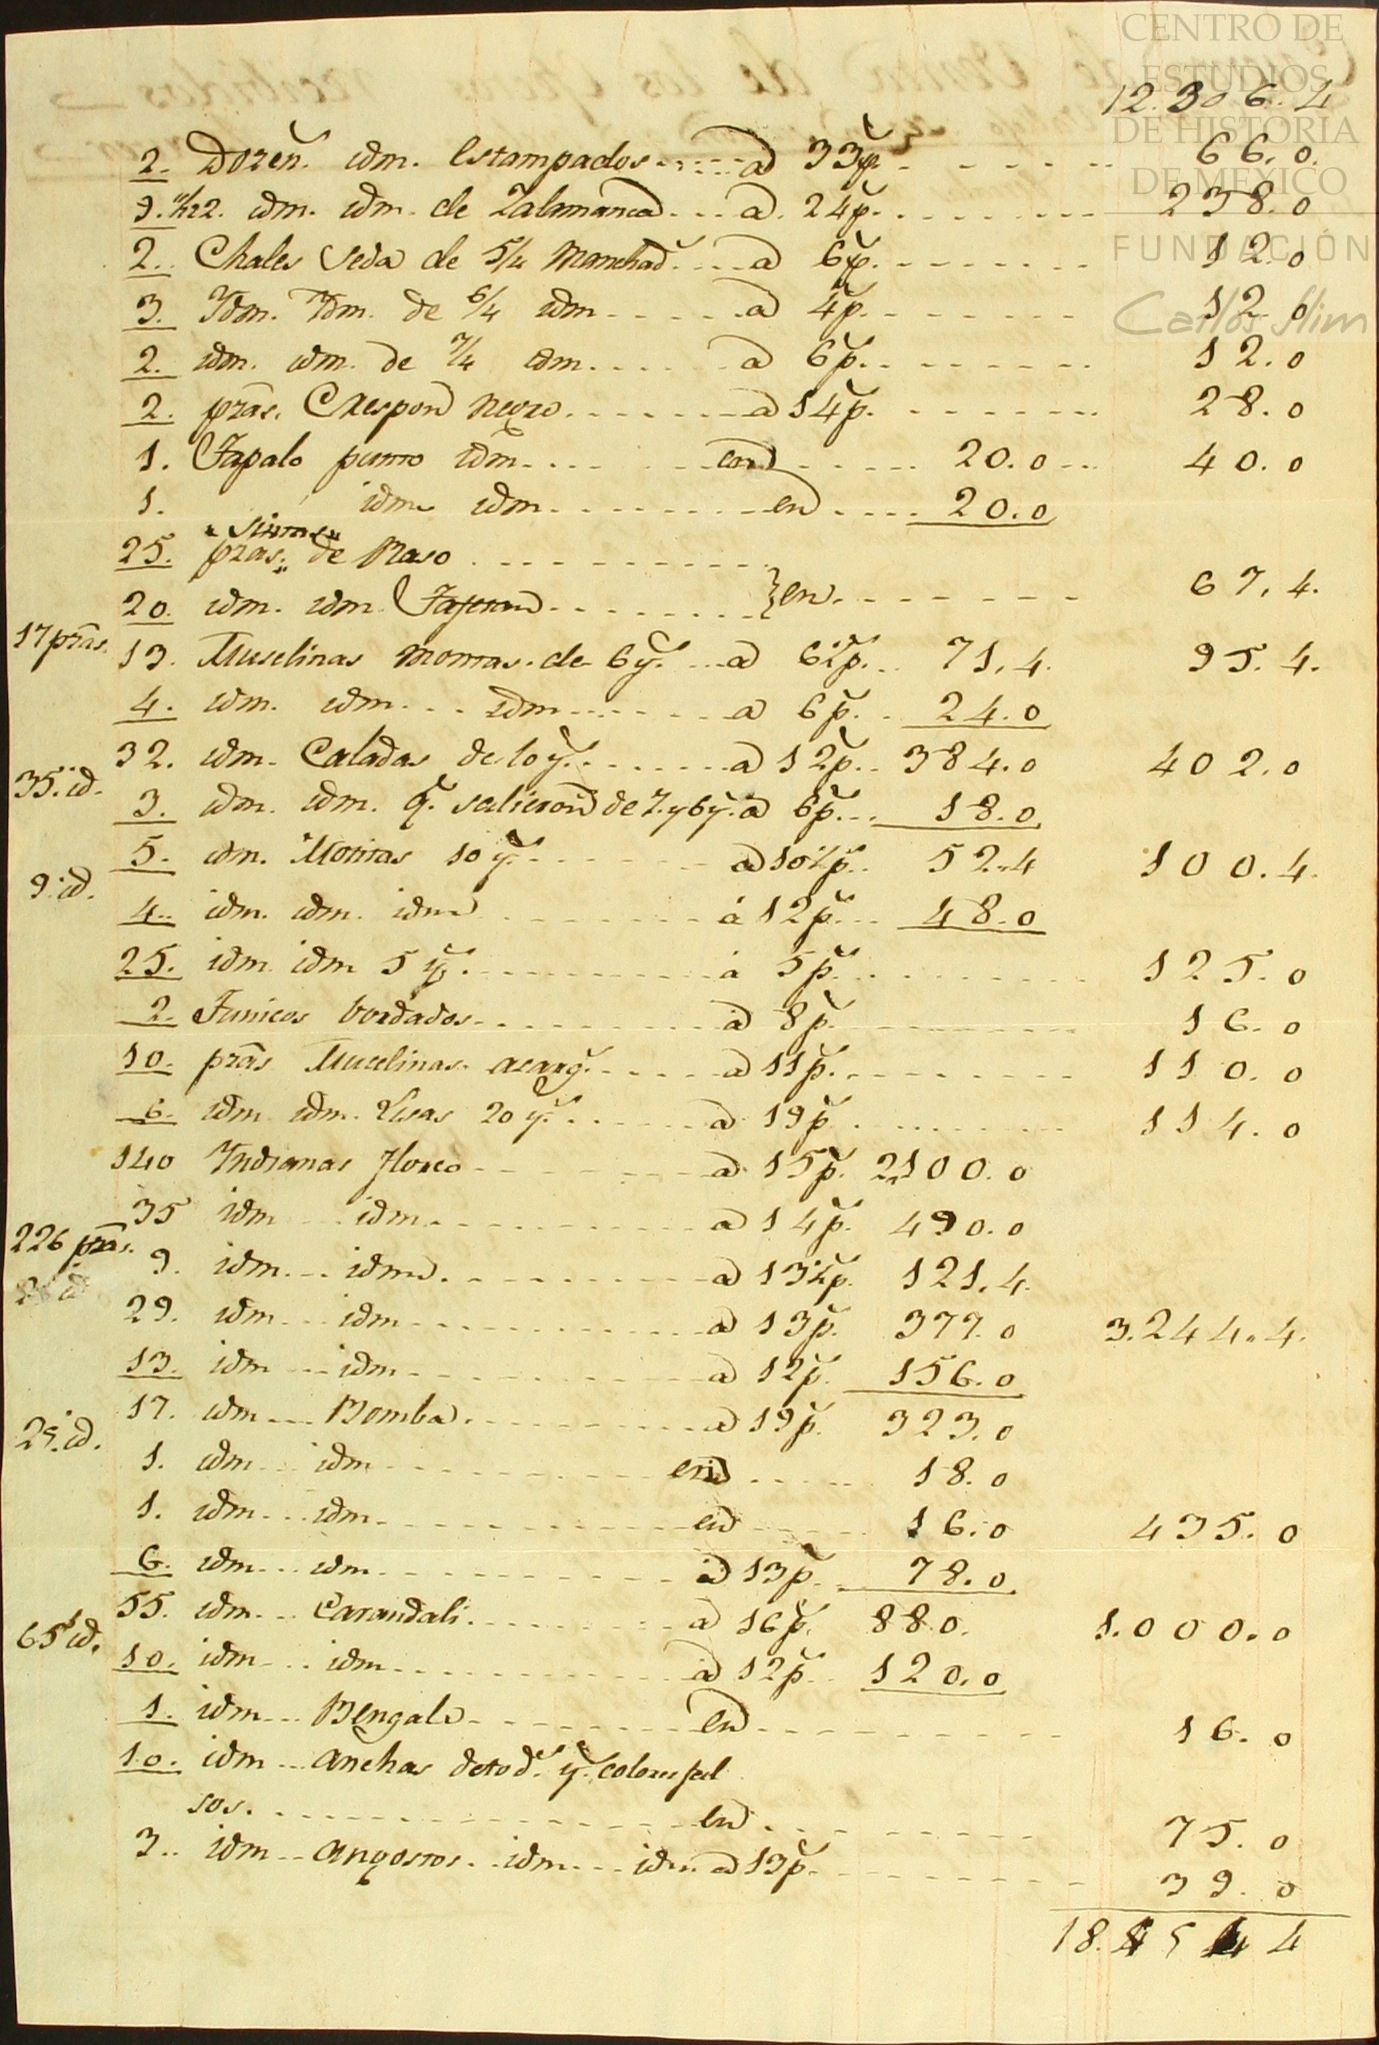 CENTRO DE
ESTUDIOS
DE HISTORIA
DE MÉXICO
FUNDACIÓN
Carlos Slim
12.306.4
2. Dozen.s idm. Estampados a 33 p.s 66.0.
9. 11/12. idm. idm. de Zalamanca a 24 p.s 238.0
2. Chales Seda de 5/4 Manchad.s a 6 p.s 12.0
3. Idm. Idm. de 6/4 idm a 4 p.s 12.0
2. idm. idm. de 7/4 idm. a 6 p.s 12.0
2. pzas. Crespon negro a 14 p.s 28.0
1. Tapalo punto idm. en 20.0 40.0
1. idm idm en 20.0
25. pzas. Sintas de Raso
20. idm. idm. en 67,4.
17 pzas. 13. Muselinas Montas. de 6 y.s a 5½ p.s 71,4. 95.4.
4. idm. idm. idm a 6 p.s 24.0
32. idm. Caladas de 10 y.s a 12 p.s 384.0 402.0
35. id. 3. idm. idm. q.e salieron de 7. y 6 y.s a 6 p.s 18.0
5. idm. Motitas 10 y.s a 10½ p.s 52.4 100.4.
9. id. 4. idm. idm. idm a 12 p.s 48.0
25. idm idm 5 y.s a 5 p.s 125.0
2. Tunicos bordados a 8 p.s 16.0
10. pzas Muselinas. a 11 p.s 110.0
6. idm idm. Lisas 20 y.s a 19 p.s 114.0
140 Indianas floreo a 15 p.s 2,100.0
35 idm idm. a 14 p.s 490.0
226 pzas. 9. idm. idm. a 13½ p.s 121.4.
29. idm idm a 13 p.s 377.0 3.244.4.
13. idm idm a 12 p.s 156.0
17. idm Bomba. a 19 p.s 323.0
25. id. 1. idm idm en 18.0
1. idm idm. en 16.0 435.0
6. idm idm. a 13 p.s 78.0
55. idm. Carandali. a 16 p.s 880. 1.000.0
65 id. 10. idm idm a 12 p.s 120.0
1. idm Bengala en 16.0
10. idm anchas de tod.s y.s colores fal
sos. en 75.0
3. idm angostos. idm idm a 13 p.s 39.0
18. 4